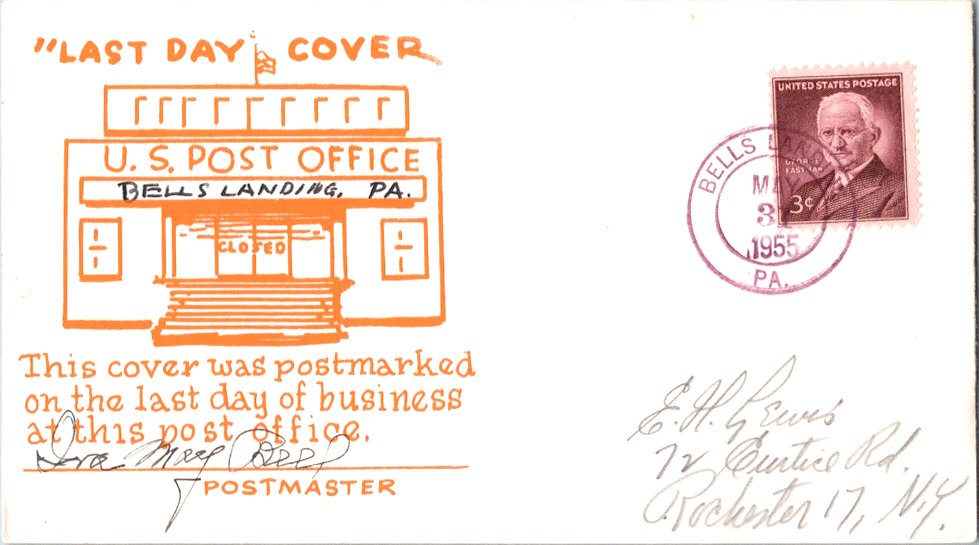 "LAST DAY COVER
U.S. POST OFFICE
BELLS LANDING, PA.
CLOSED
This cover was postmarked
on the last day of business
at this post office.
Dora May Bell
POSTMASTER
UNITED STATES POSTAGE
GEORGE
EASTMAN
3¢
BELLS LANDING
MAY
31
1955
PA.
E. H. Lewis
72 Curtice Rd.
Rochester 17, N.Y.